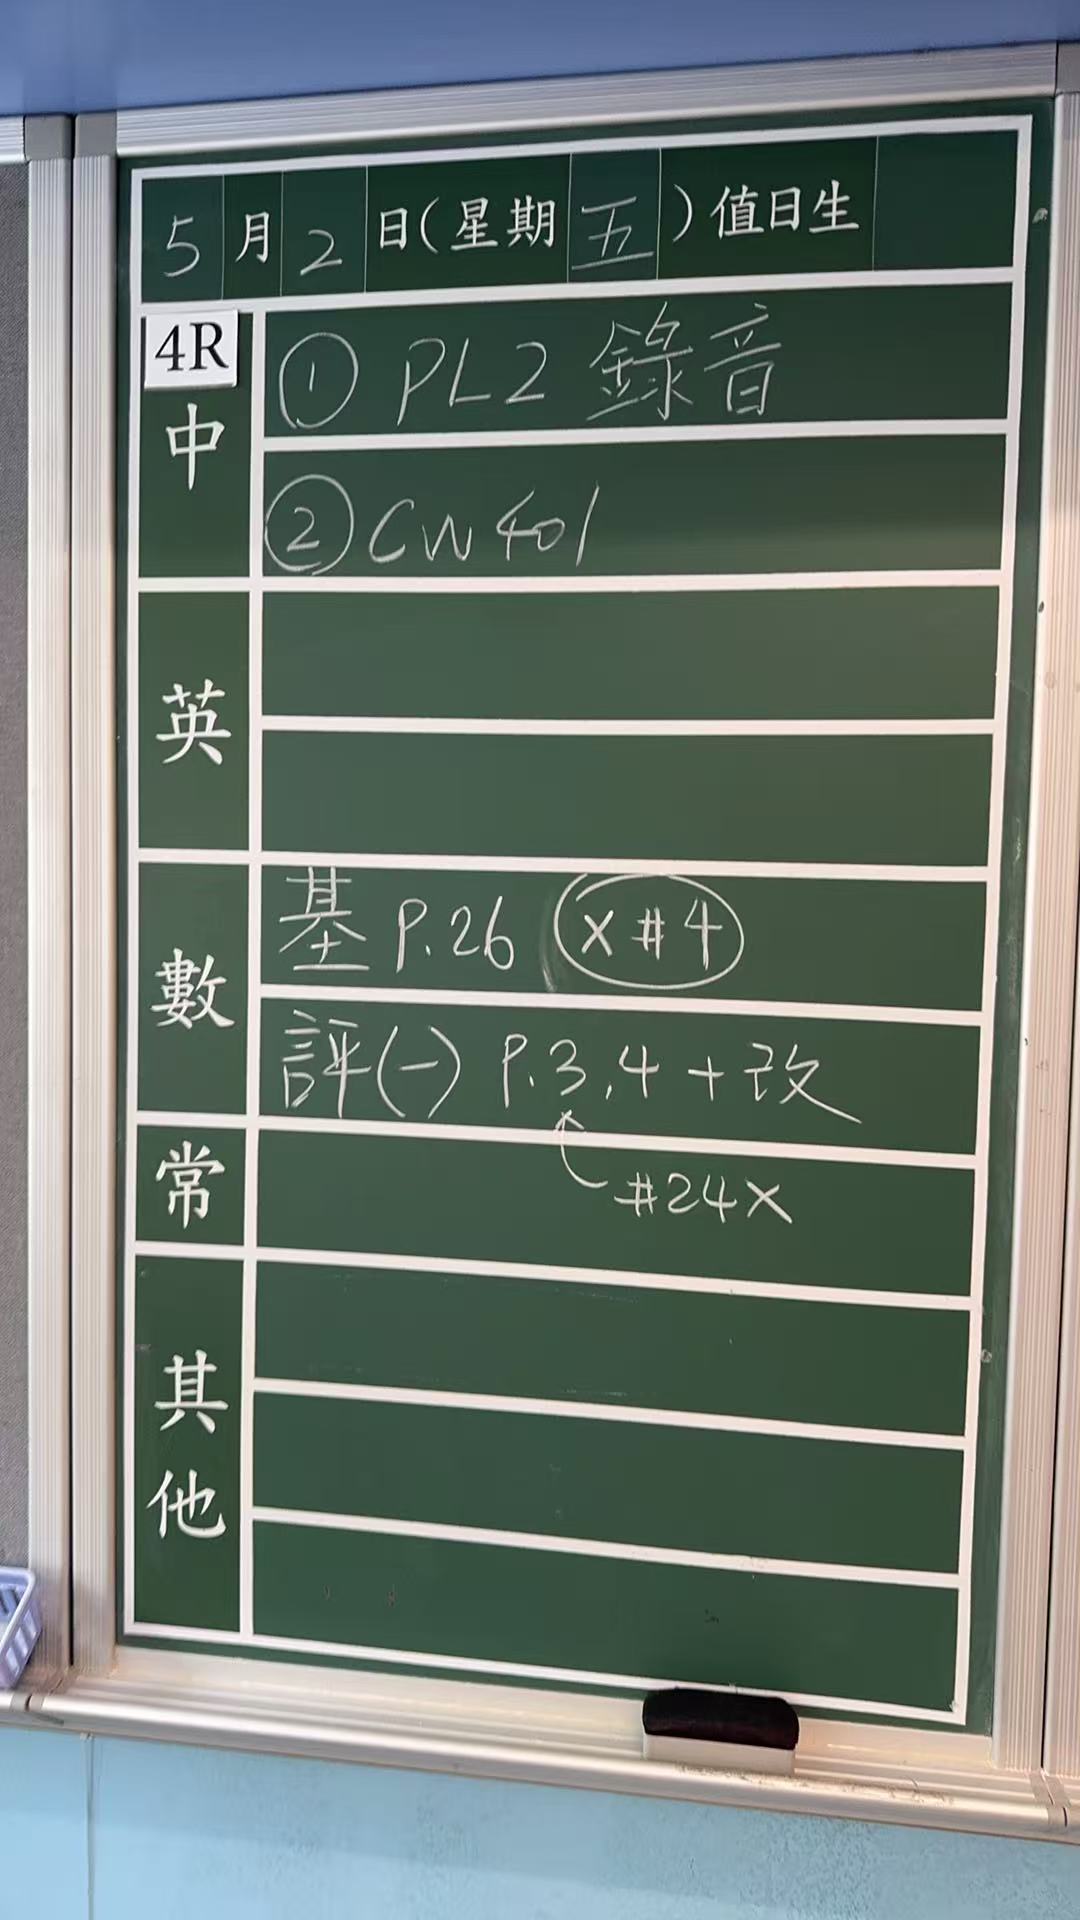 5月2日(星期五)值日生
4R
中
① PL2 錄音
② CW401
英
數
基 P.26 x#4
評(一) P.3,4 + 改
#24x
常
其他